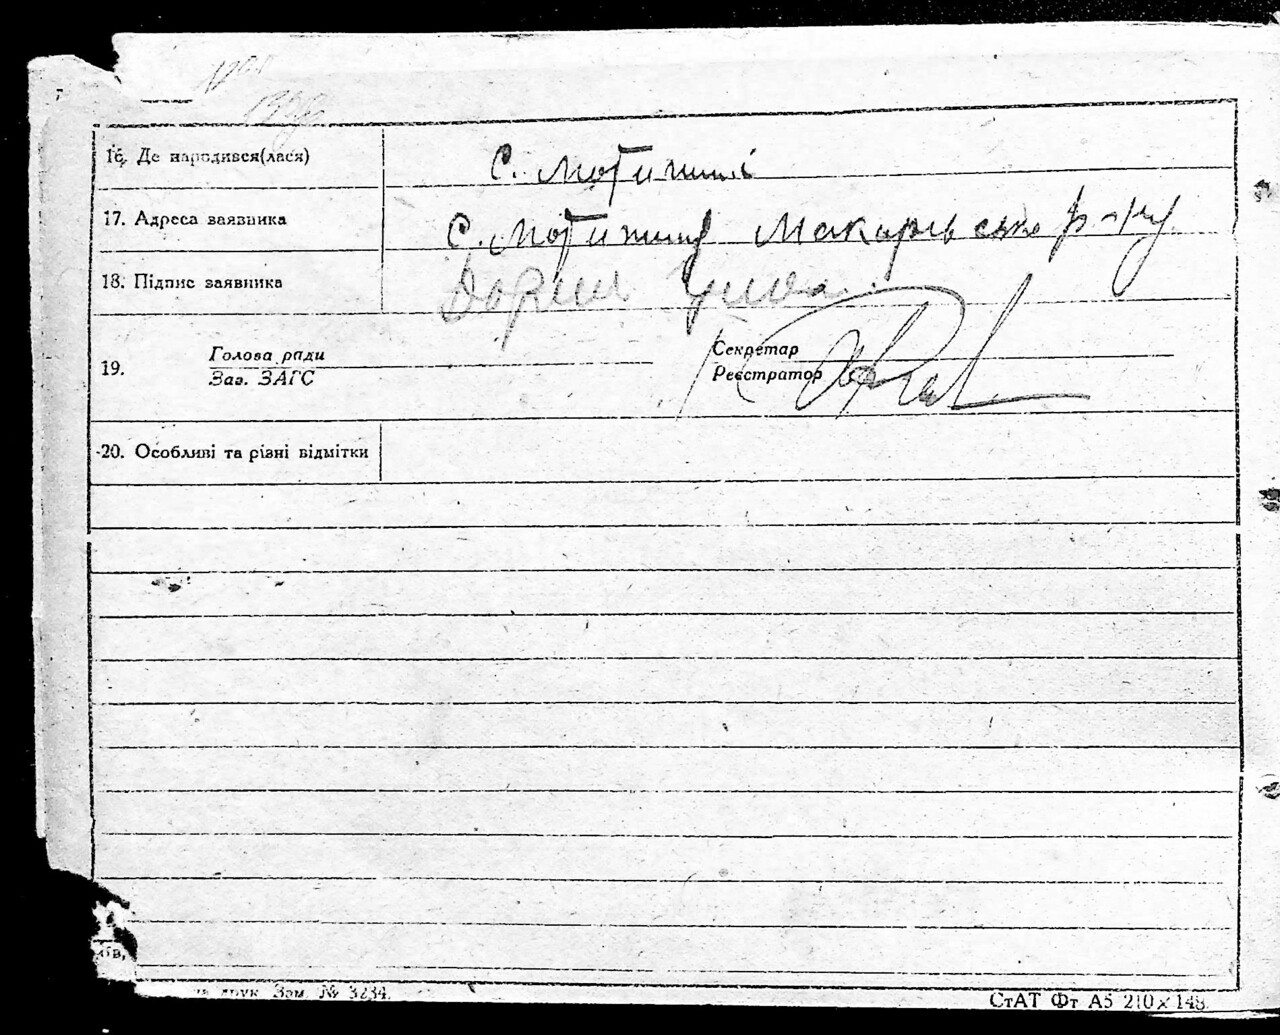 16. Де народився(лася) с. Мотижині
17. Адреса заявника с. Мотижин Макарівсько р-ну
18. Підпис заявника
19. Голова ради Секретар
Заг. ЗАГС Реєстратор
20. Особливі та різні відмітки
друк. Зам. № 3234.
СтАТ Фт А5 210×148